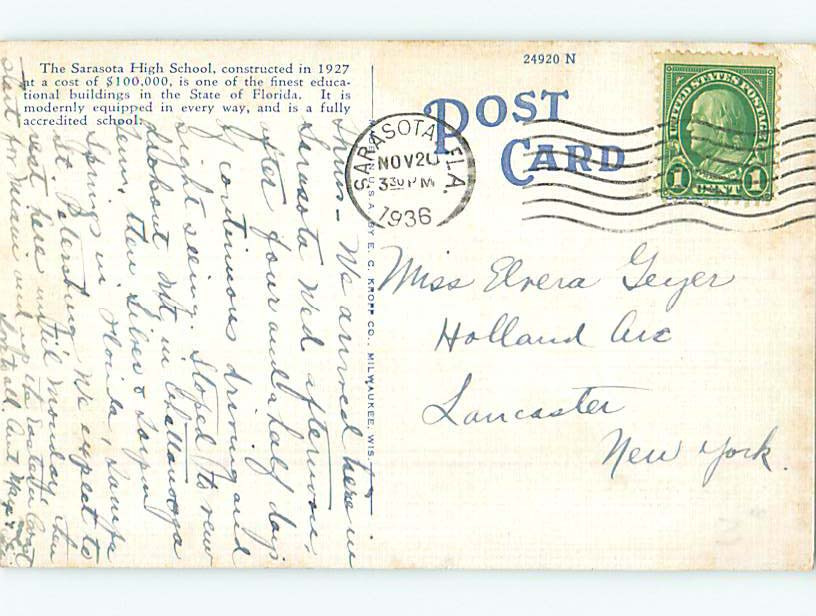 The Sarasota High School, constructed in 1927
at a cost of $100,000, is one of the finest educa-
tional buildings in the State of Florida. It is
modernly equipped in every way, and is a fully
accredited school.
24920 N
POST
CARD
UNITED STATES POSTAGE
1 CENT 1
SARASOTA, FLA.
NOV 20
3 30 PM
1936
U.S.A. BY E. C. KROPP CO., MILWAUKEE, WIS.
Miss Elvera Geyer
Holland Ave
Lancaster
New York.
We arrived here in
Sarasota Wed afternoon,
after four and a half days
of continuous driving and
sight seeing. Stoped to view
Lookout Mt, in Chattanooga
Tenn, then Silver &
Springs in Florida, Tampa
St. Petersburg We expect to
rest here until Monday then
start to Miami and up the Eastern Coast
Love to all. Aunt May &